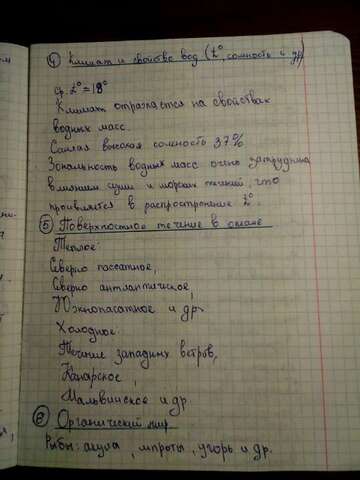 ④ Климат и свойство вод (t°, солность и др)
ср. t° = 18°
Климат отражается на свойствах
водных масс.
Самая высокая солность 37%
Зональность водных масс очень затруднена
влиянием суши и морских течений, что
проявляется в распространение t°.
⑤ Поверхностное течение в океане
Теплое:
Северо пассатное,
Северо антлантическое,
Южнопасатное и др
Холодное:
Течение западных ветров,
Канарское,
Мальвинское и др.
Органический мир
Рыбы: акула, шпроты, угорь и др.